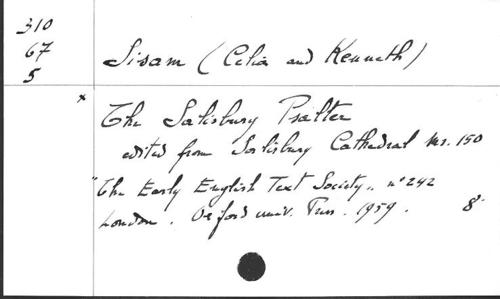 310
67
5
Sisam (Celia and Kenneth)
* The Salisbury Psalter
edited from Salisbury Cathedral Ms. 150
"The Early English Text Society„ n° 242
London. Oxford univ. Press. 1959. 8°